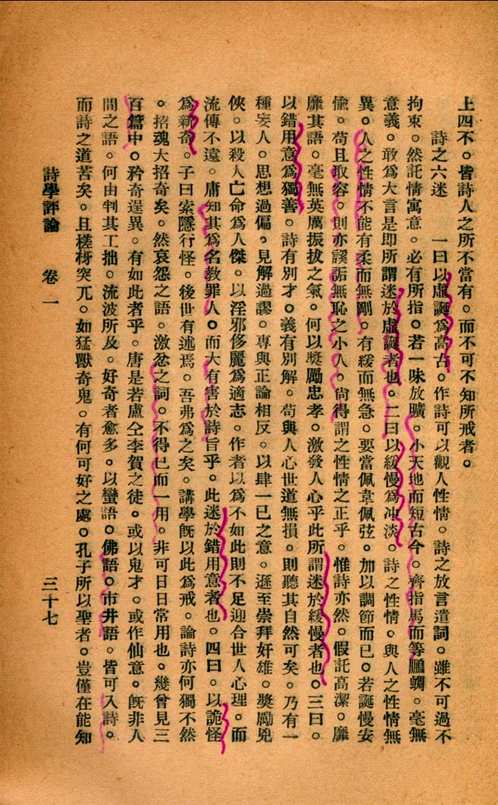 上四不。皆詩人之所不當有。而不可不知所戒者。
詩之六迷　一曰以虛誕爲高古。作詩可以觀人性情。詩之放言遣詞。雖不可過不
拘束。然託情寓意。必有所指。若一味放曠。小天地而短古今。齊指馬而等鵬蜩。毫無
意義。敢爲大言是卽所謂迷於虛誕者也。二曰以緩慢爲沖淡。詩之性情。與人之性情無
異。人之性情不能有柔而無剛。有緩而無急。要當佩韋佩弦。加以調節而已。若誕慢安
偸。苟且取容。則亦諂諛無恥之小人。尙得謂之性情之正乎。惟詩亦然。假託高潔。靡
靡其語。毫無英厲振拔之氣。何以獎勵忠孝。激發人心乎此所謂迷於緩慢者也。三曰。
以錯用意爲獨善。詩有別才。義有別解。苟與人心世道無損。則聽其自然可矣。乃有一
種妄人。思想過偏。見解過謬。專與正論相反。以肆一己之意。遂至崇拜奸雄。獎勵兇
俠。以殺人亡命爲人傑。以淫邪侈靡爲適志。作者以爲不如此則不足迎合世人心理。而
流傳不遠。庸知其爲名教罪人。而大有害於詩旨乎。此迷於錯用意者也。四曰。以詭怪
爲新奇。子曰索隱行怪。後世有述焉。吾弗爲之矣。講學旣以此爲戒。論詩亦何獨不然
。招魂大招奇矣。然哀怨之語。激忿之詞。不得已而一用。非可日日常用也。幾曾見三
百篇中。矜奇逞異。有如此者乎。唐是若盧仝李賀之徒。或以鬼才。或作仙意。旣非人
間之語。何由判其工拙。流波所及。好奇者愈多。以蠻語。佛語。市井語。皆可入詩。
而詩之道苦矣。且槎枒突兀。如猛獸奇鬼。有何可好之處。孔子所以聖者。豈僅在能知
詩學評論　卷一　三十七